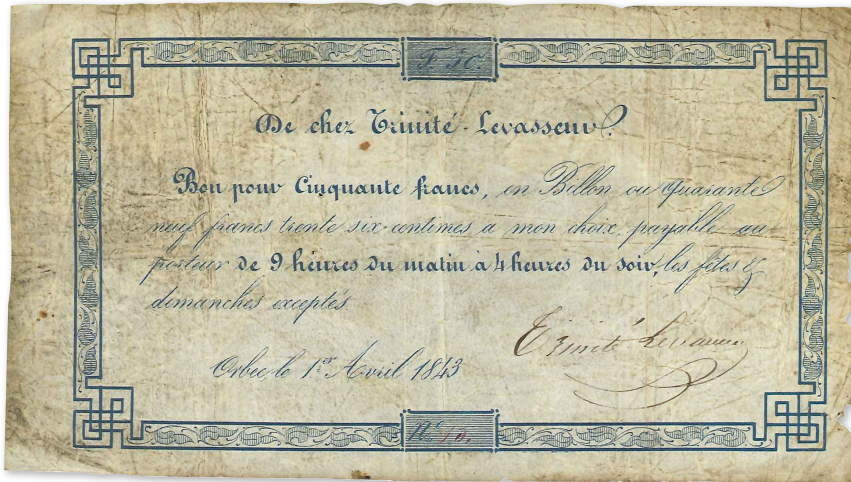 F. 50.
De chez Trinité-Levasseur.
Bon pour Cinquante francs, en Billon ou quarante
neuf francs trente six centimes a mon choix, payable au
porteur de 9 heures du matin à 4 heures du soir, les fêtes &
dimanches exceptés.
Trinité Levasseur
Orbec le 1er Avril 1843
No 10.